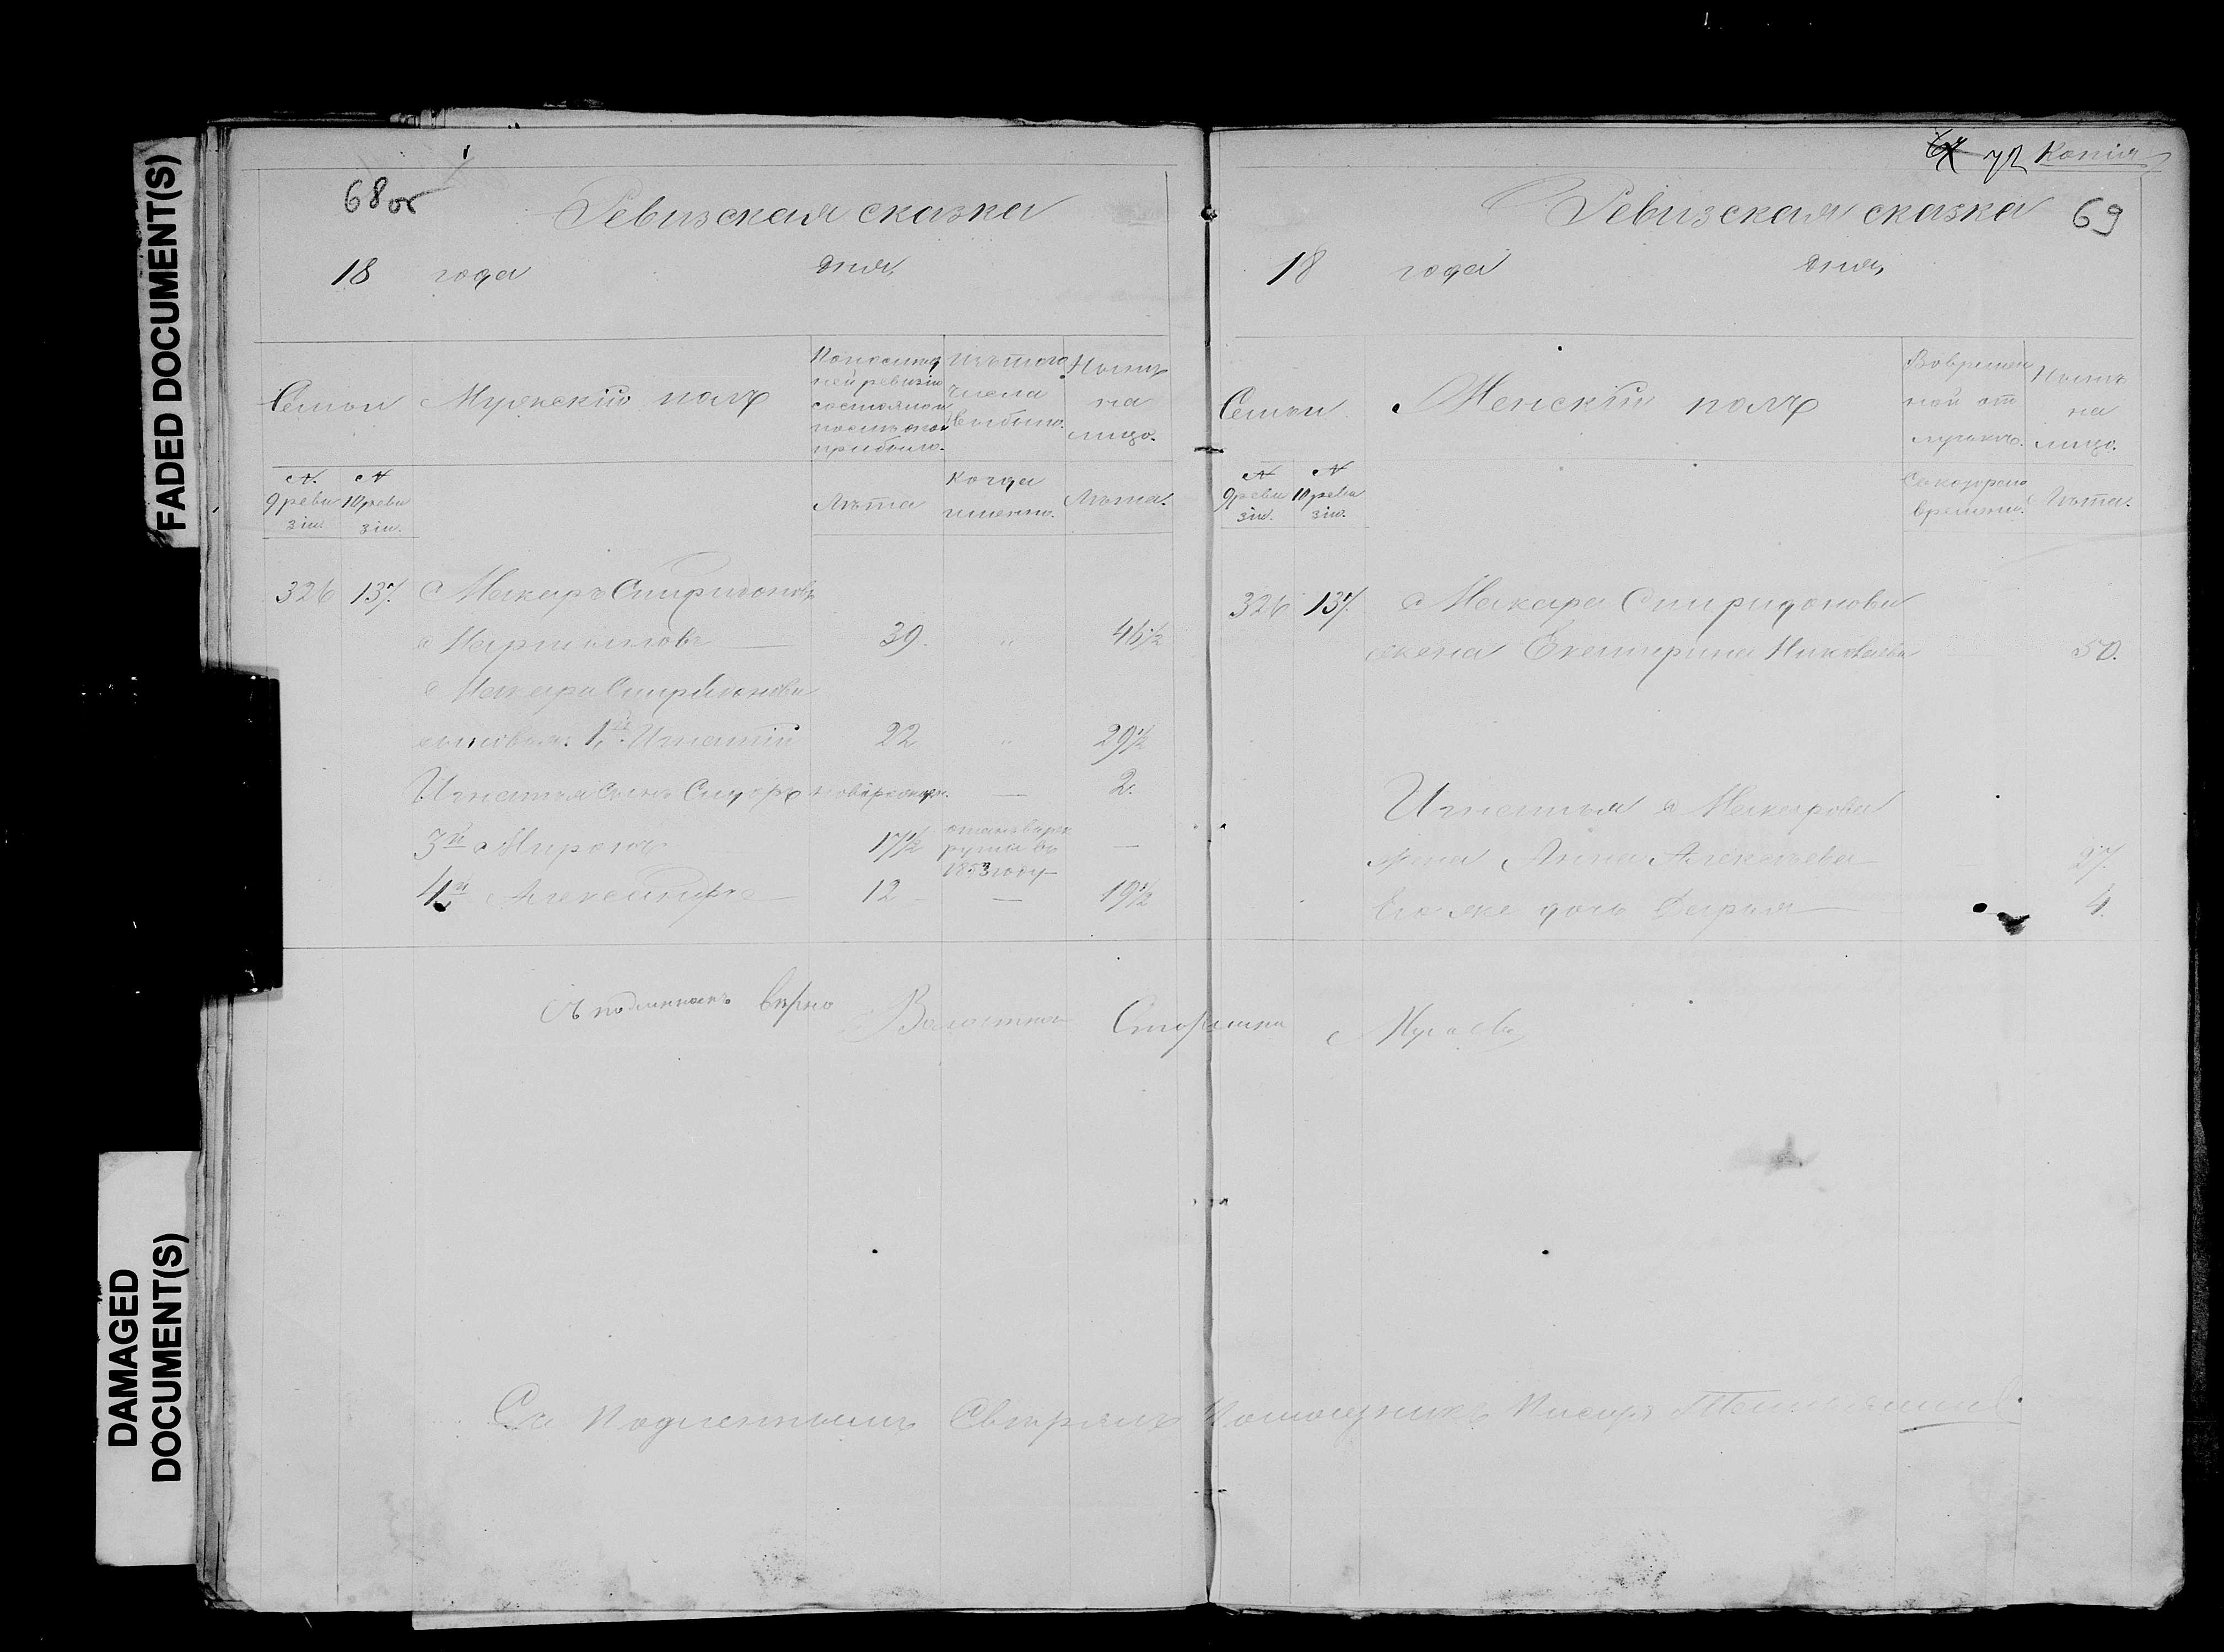 FADED DOCUMENT(S)
DAMAGED
DOCUMENT(S)
68об
Ревизская сказка
18 года дня
Семьи
Мужескій полъ
По послед
ней ревизіи
состояло и
послѣ того
прибыло.
Изъ того
числа
выбыло.
Нынѣ
на
лицо.
№
9 реви
зіи.
№
10 реви
зіи.
Лѣта
Когда
именно.
Лѣта.
326 137. Макаръ Спиридоновъ
39. " 46½
Макара Спиридонова
сыновья. 1й Игнатій 22 " 29½
Игнатья сынъ Сидоръ — 2.
3й Миронъ 17½ —
рекруты въ
1853 году
4й Александръ 12 — 19½
Съ подлиннымъ вѣрно Волостной Старшина
Съ Подленнымъ Свѣрялъ Помощникъ Писаря
72 Копія
Ревизская сказка 69
18 года дня
Семьи
Женскій полъ
Во времен
ной от
лучкѣ.
Нынѣ
на
лицо.
№
9 реви
зіи.
№
10 реви
зіи.
Съ котораго
времени.
Лѣта.
326 137. Макара Спиридонова
жена Екатерина Николаева 50.
Игнатья Макарова
жена Анна Алексѣева 27.
Его же дочь Дарья 4.